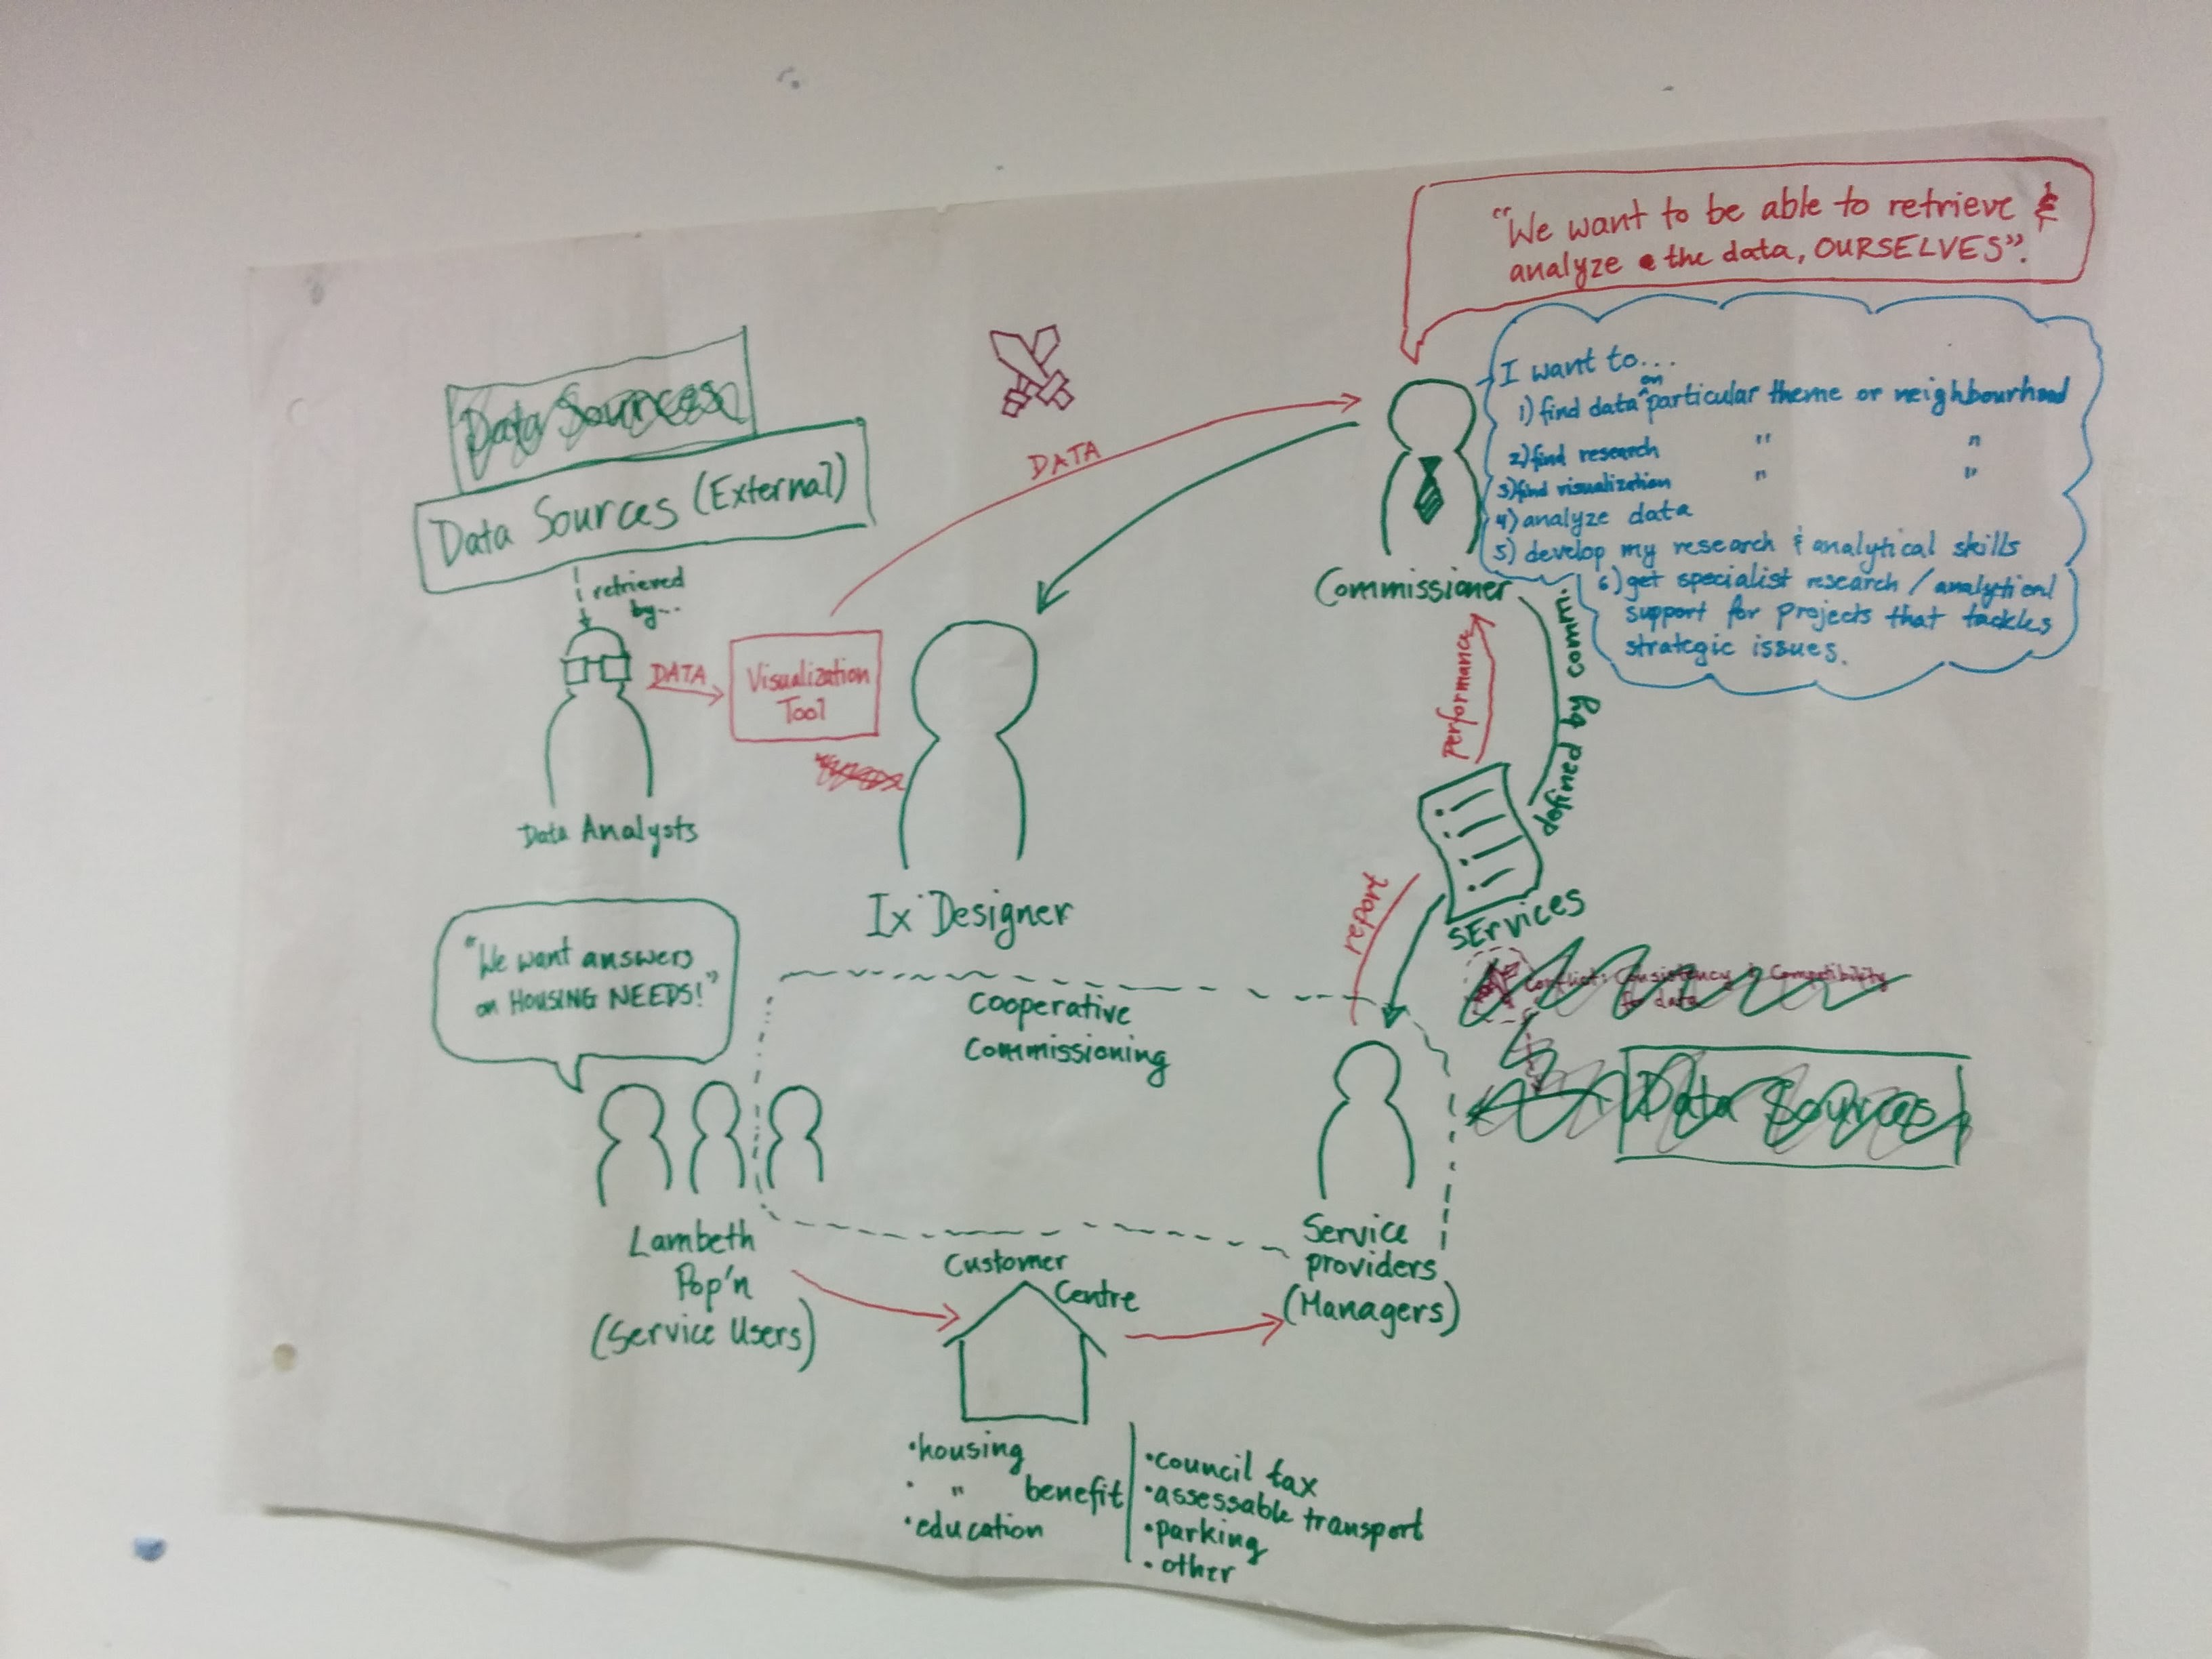 "We want to be able to retrieve &
analyze the data, OURSELVES".
I want to...
1) find data on particular theme or neighbourhood
2) find research " "
3) find visualization " "
4) analyze data
5) develop my research & analytical skills
6) get specialist research / analytical
support for projects that tackles
strategic issues.
Data Sources
Data Sources (External)
retrieved
by...
DATA
DATA
Visualization
Tool
Data Analysts
Ix Designer
Commissioner
Performance
defined by comm.
Services
report
Conflict: Consistency & Compatibility
for data
Data Sources
"We want answers
on HOUSING NEEDS!"
Cooperative
Commissioning
Lambeth
Pop'n
(Service Users)
Customer
Centre
Service
providers
(Managers)
•housing
• " benefit
•education
•council tax
•assessable transport
•parking
•other